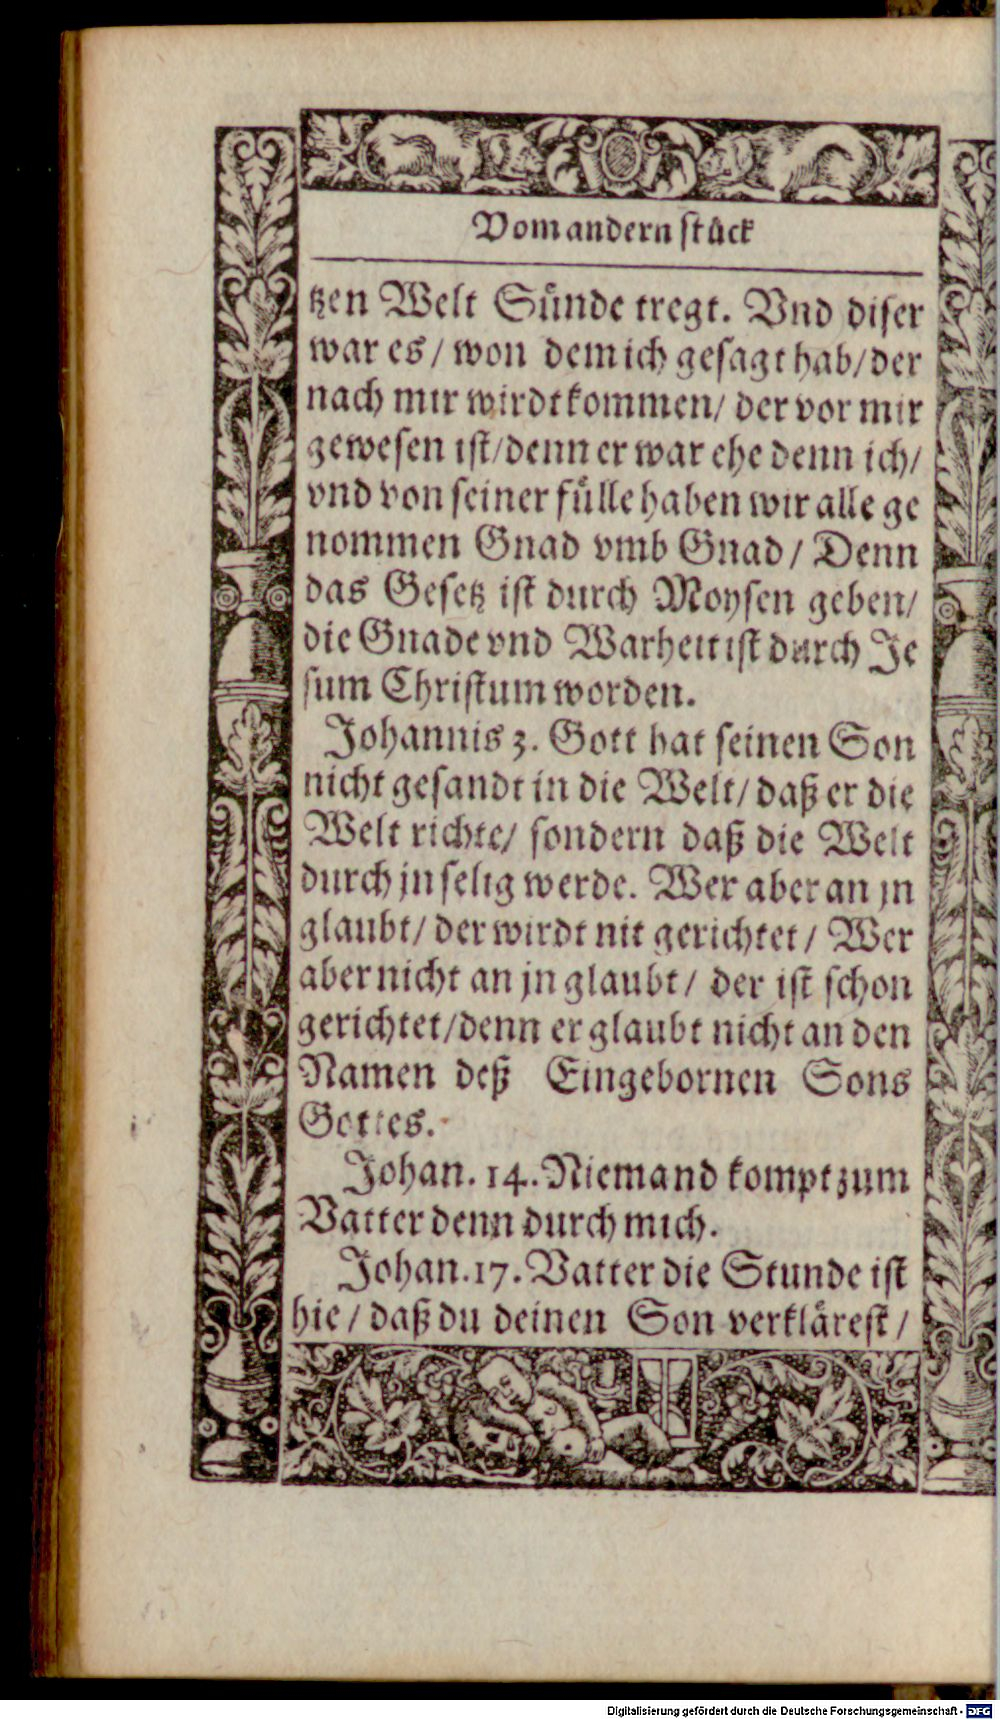 Vom andern stück
tzen Welt Sünde tregt. Vnd diser
war es / won dem ich gesagt hab / der
nach mir wirdt kommen / der vor mir
gewesen ist / denn er war ehe denn ich /
vnd von seiner fülle haben wir alle ge
nommen Gnad vmb Gnad / Denn
das Gesetz ist durch Moysen geben /
die Gnade vnd Warheit ist durch Je
sum Christum worden.
Johannis 3. Gott hat seinen Son
nicht gesandt in die Welt / daß er die
Welt richte / sondern daß die Welt
durch jn selig werde. Wer aber an jn
glaubt / der wirdt nit gerichtet / Wer
aber nicht an jn glaubt / der ist schon
gerichtet / denn er glaubt nicht an den
Namen deß Eingebornen Sons
Gottes.
Johan. 14. Niemand kompt zum
Vatter denn durch mich.
Johan. 17. Vatter die Stunde ist
hie / daß du deinen Son verklärest /
Digitalisierung gefördert durch die Deutsche Forschungsgemeinschaft - DFG